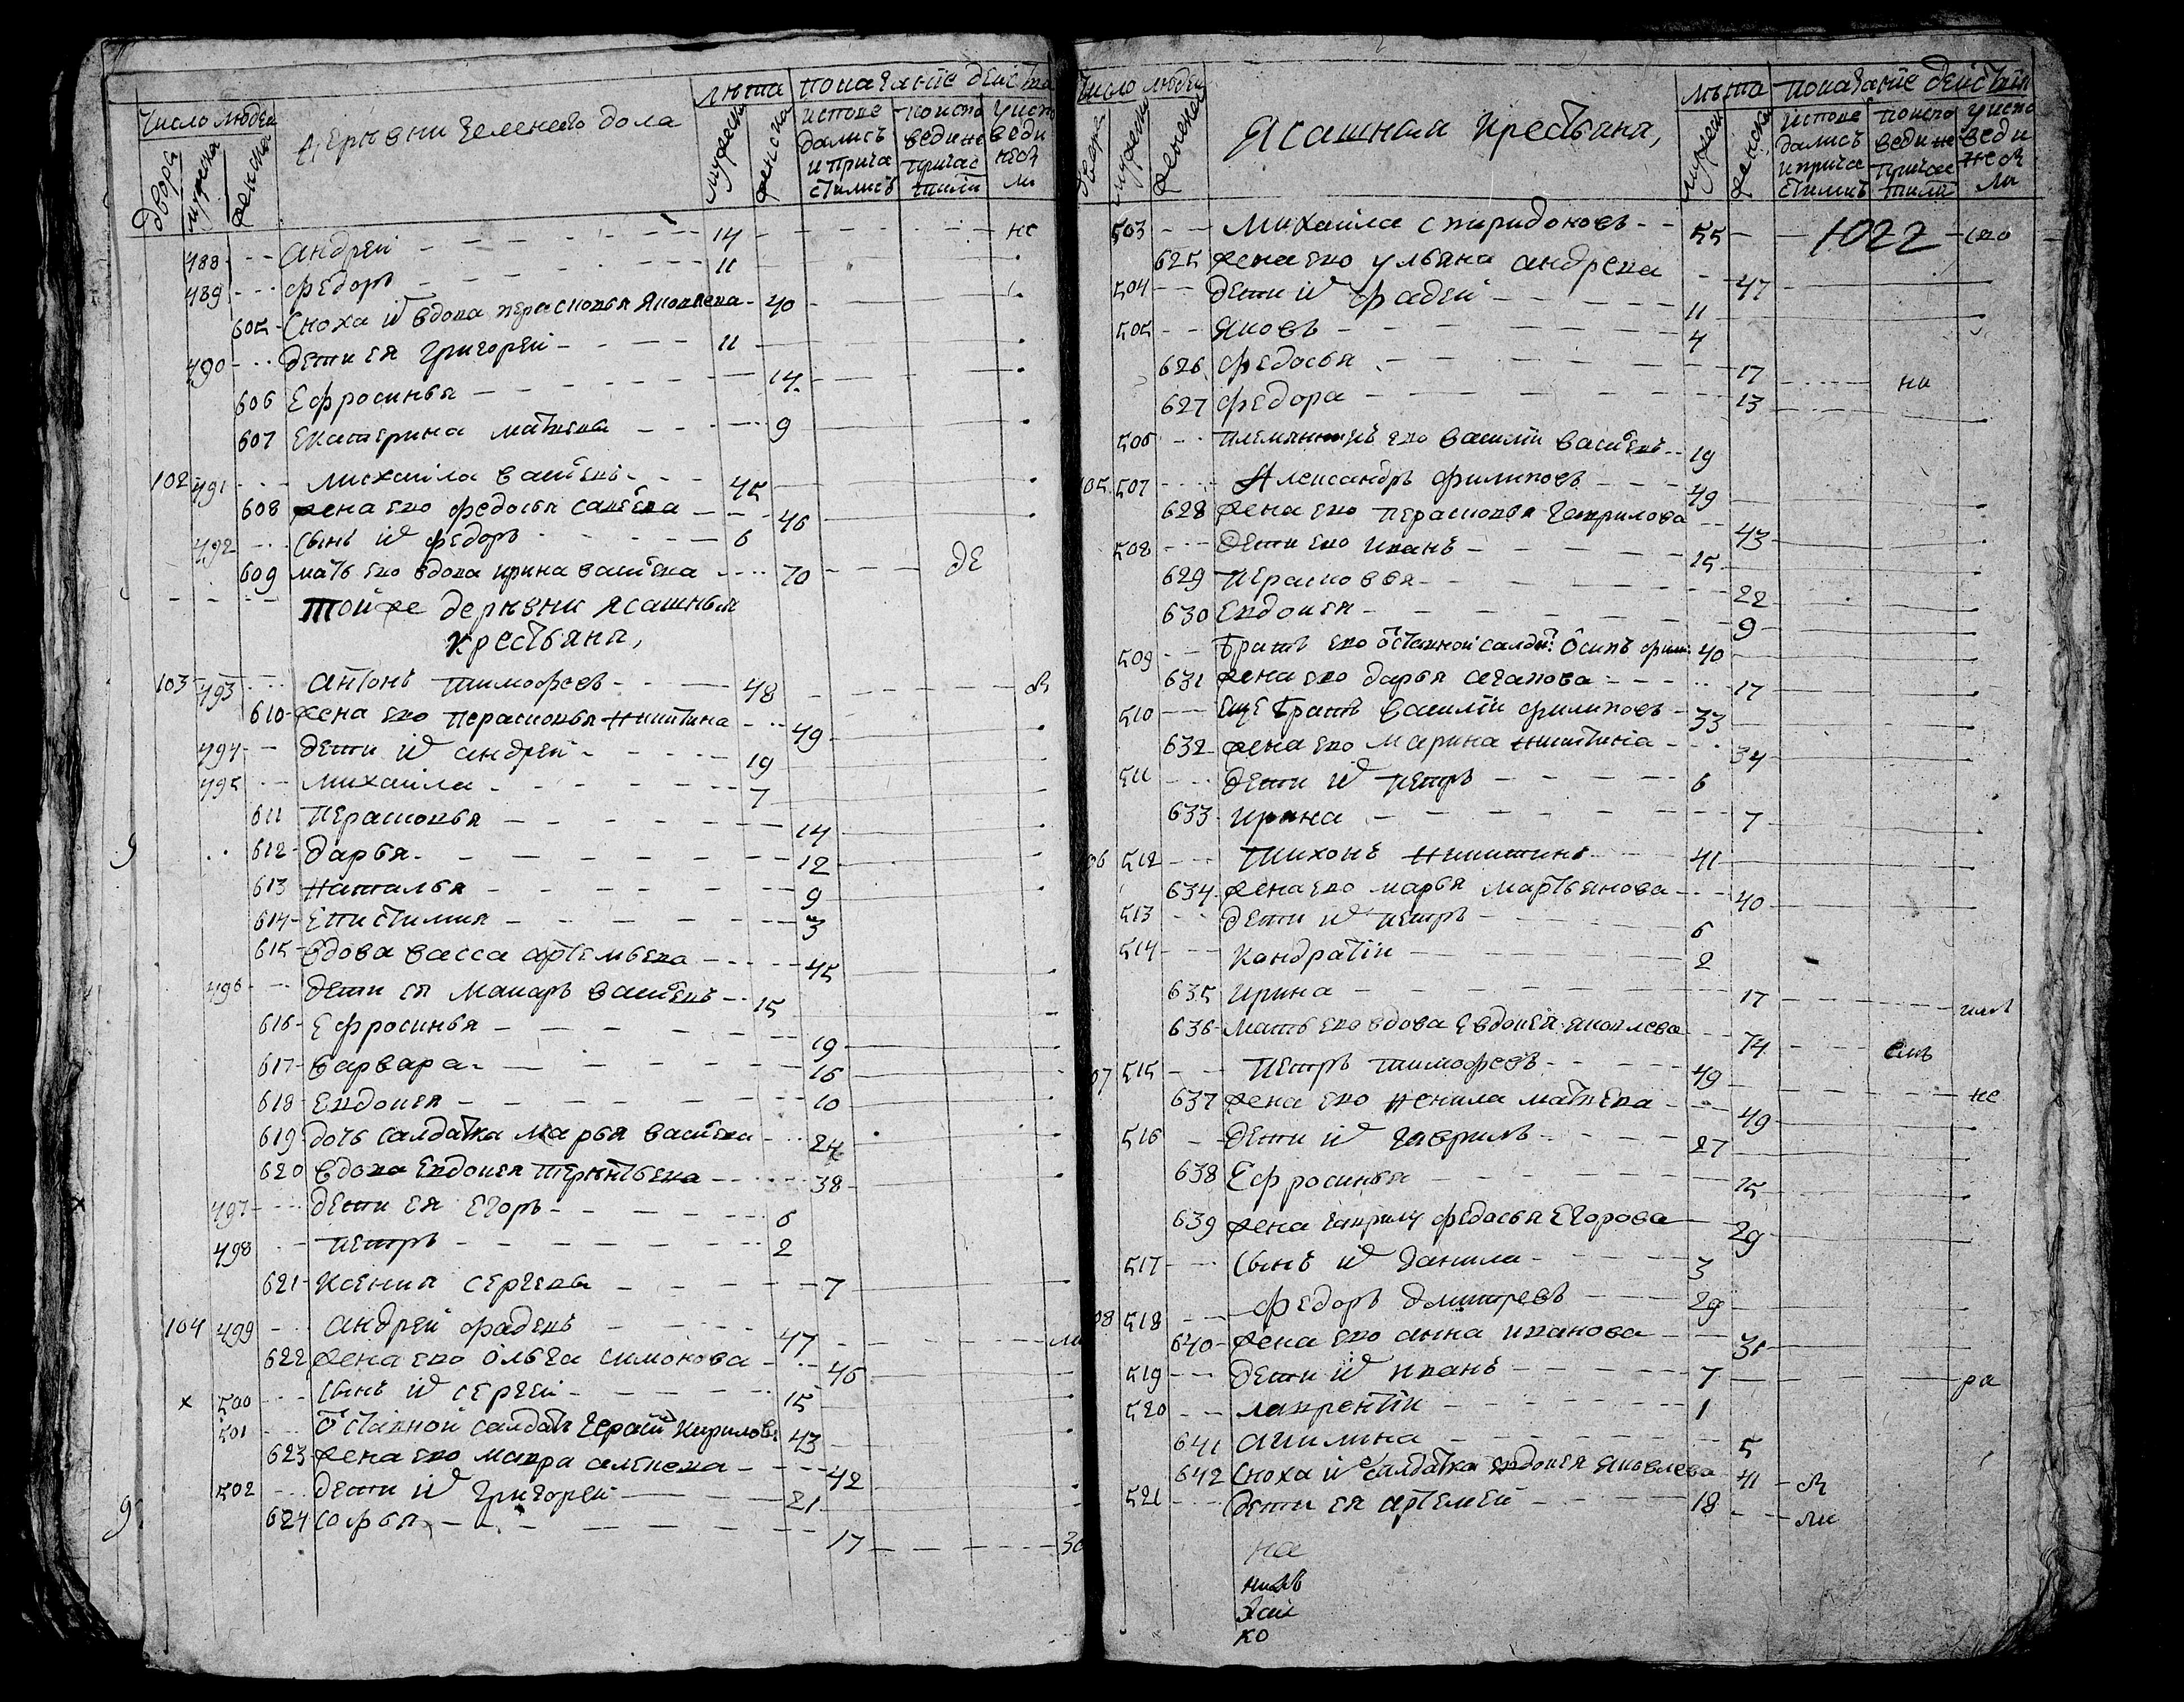 Число людей
Деревни Зеленого дола
лета
показание действа
двора
мужеска
женска
мужеска
женска
исповедались и причастились
исповеди не причастили
у исповеди не были
488 Андрей 14 не
489 Федоръ 11
605 Сноха и вдова Перасковья Яковлева 40
490 дети ея Григорей 11
606 Ефросинья 14
607 Екатерина Матвева 9
102 491 Михаила Василевъ 45
608 жена ево Федосья Савелева 46
492 Сынъ их Федоръ 6
609 мать ево вдова Ирина Васильева 70 де
Той же деревни Ясашныя
крестьяня,
103 493 Антонъ Тимофеевъ 48
610 жена ево Перасковья Никитина 49
494 дети их Андрей 19
495 Михаила 7
611 Перасковья 14
612 Дарья 12
613 Наталья 9
614 Епистимия 3
615 вдова Васса Артемьева 45
496 дети ея Макаръ Василевъ 15
616 Ефросинья 19
617 Варвара 16
618 Евдокея 10
619 дочь салдатка Марья Васильева 24
620 вдова Евдокея Терентьева 38
497 дети ея Егоръ 6
498 Петръ 2
621 Ксения Сергева 7
104 499 Андрей Фадеевъ 47
622 жена ево Ольга Симонова 46
500 Сынъ их Сергей 15
501 Отставной салдатъ Герасим Кириловъ 43
623 жена ево Мавра Алексева 42
502 дети их Григорей 21
624 Софья 17
Число людей
Ясашныя крестьяня,
лета
показание действия
двора
мужеска
женска
мужеска
женска
исповедались и причастились
исповеди не причастили
у исповеди не были
503 Михаила Спиридоновъ 55 1022
625 жена ево Ульяна Андрева 47
504 дети их Фадей 11
505 Яковъ 4
626 Федосья 17 на
627 Федора 13
506 племянникъ ево Василий Василевъ 19
105 507 Александръ Филиповъ 49
628 жена ево Перасковья Гаврилова 43
508 дети ево Иванъ 15
629 Перасковья 22
630 Евдокея 9
509 братъ ево отставной салдат: Осипъ Филип 40
631 жена ево Дарья Агапова 17
510 еще братъ Василий Филиповъ 33
632 жена ево Марина Никитина 34
511 дети их Петръ 6
633 Ирина 7
106 512 Тихонъ Никитинъ 41
634 жена ево Марья Мартьянова 40
513 дети их Петръ 6
514 Кондратий 2
635 Ирина 17
636 мать ево вдова Евдокея Яковлева 74
107 515 Петръ Тимофеевъ 49
637 жена ево Ненила Матвева 49 не
516 дети их Гаврилъ 27
638 Ефросинья 15
639 жена Гаврилу Федосья Егорова 29
517 Сынъ их Данила 3
108 518 Федоръ Дмитревъ 29
640 жена ево Анна Иванова 31
519 дети их Иванъ 7 ра
520 Лаврентий 1
641 Акилина 5
642 Сноха их салдатка Евдокея Яковлева 41
521 дети ея Артемей 18
на
ко